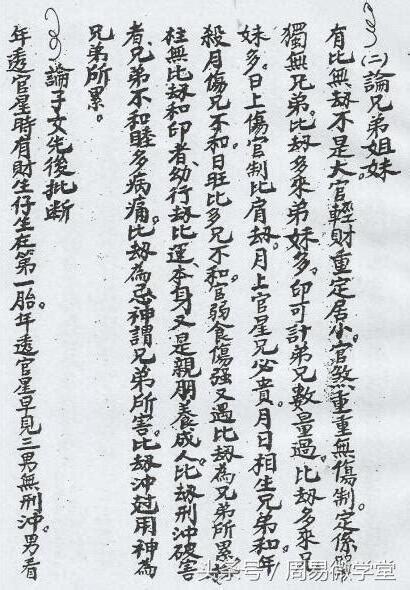 (二)論兄弟姐妹
有比無刼不是大官輕財重定居小官煞重重無傷制定係單
獨無兄弟。比刼多來弟妹多。印可計弟兄數量過。比刼多來兄
妹多。日上傷官制比肩刼。月上官星兄必貴。月日相生兄弟和。年
殺月傷兄不和。日旺比多兄不和。官弱食傷强又遇比刼為兄弟所累。
柱無比刼和印者、幼行刼比運、本身又是親朋養成人。比刼刑沖破害
者、兄弟不和睦多病痛。比刼為忌神謂兄弟所害。比刼沖尅用神為
兄弟所累。
論子女先後批断
年透官星時有財生仔生在第一胎。年透官星早見三男無刑沖。男看
头条号/周易微学堂